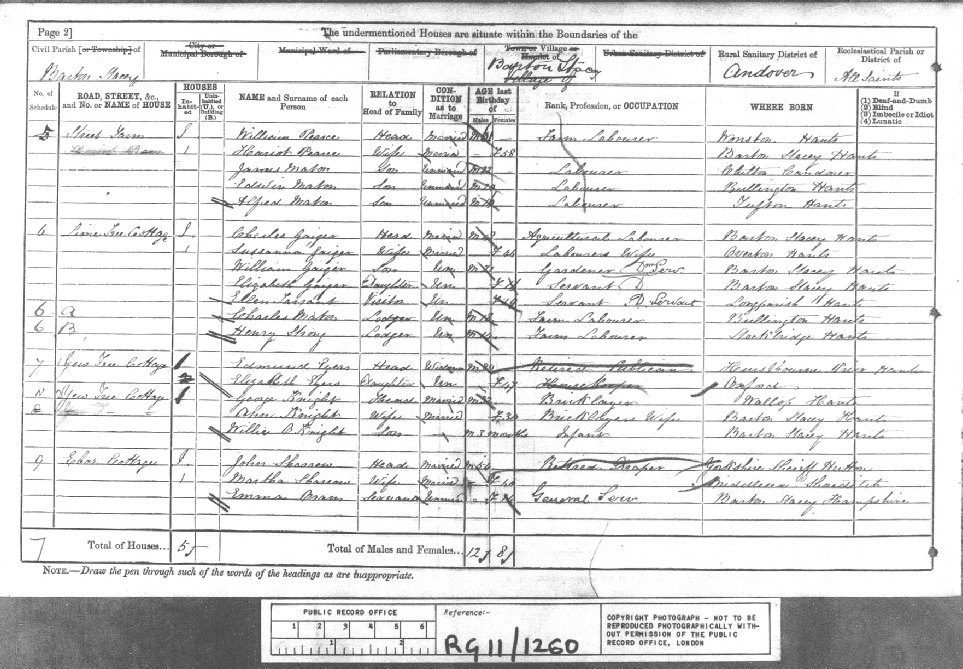 Page 2] The undermentioned Houses are situate within the Boundaries of the
Civil Parish [or Township] of City or Municipal Borough of Municipal Ward of Parliamentary Borough of Town or Village or Hamlet of Urban Sanitary District of Rural Sanitary District of Ecclesiastical Parish or District of
Barton Stacey Barton Stacey Village of Andover All Saints
No. of Schedule ROAD, STREET, &c., and No. or NAME of HOUSE HOUSES Inhabited Uninhabited (U.), or Building (B.) NAME and Surname of each Person RELATION to Head of Family CONDITION as to Marriage AGE last Birthday of Males Females Rank, Profession, or OCCUPATION WHERE BORN If (1) Deaf-and-Dumb (2) Blind (3) Imbecile or Idiot (4) Lunatic
5 Street Farm William Pearce Head Married Farm Labourer Wonston Hants
1 Hariot Pearce Wife Married 58 Barton Stacey Hants
James Maton Son Labourer Chilton Candover
Maton Son Labourer Bullington Hants
Alfred Maton Son Labourer Tufton Hants
6 Lime Tree Cottage Charles Gaiger Head Married Agricultural Labourer Barton Stacey Hants
1 Sussanna Gaiger Wife Married 46 Labourers Wife Overton Hants
William Gaiger Son Un Gardener Dom Serv Barton Stacey Hants
Elizabeth Gaiger Daughter Un Servant D Barton Stacey Hants
Ellen Tarrant Visitor Un Servant D Servant Longparish Hants
6 A Charles Maton Lodger Un Farm Labourer Bullington Hants
6 B Henry Strong Lodger Un Farm Labourer Stockbridge Hants
7 Yew Tree Cottage Edmund Head Widower Retired Publican Hurstbourne Prior Hants
Elizabeth Daughter Un 47 House Keeper
Yew Tree Cottage George Knight Head Married Bricklayer Wallop Hants
Ann Knight Wife Married 30 Bricklayers Wife Barton Stacey Hants
Willie Knight Son 3 months Infant Barton Stacey Hants
9 Cottage John Head Married Retired Draper Yorkshire Sheriff Hutton
1 Martha Wife Married Middlesex Shoreditch
Emma Servant General Serv Barton Stacey Hampshire
7 Total of Houses... 5 Total of Males and Females... 12 8
NOTE.—Draw the pen through such of the words of the headings as are inappropriate.
PUBLIC RECORD OFFICE
1 2 3 4 5 6
1 2
Reference:-
RG 11/1260
COPYRIGHT PHOTOGRAPH - NOT TO BE
REPRODUCED PHOTOGRAPHICALLY WITH-
OUT PERMISSION OF THE PUBLIC
RECORD OFFICE, LONDON